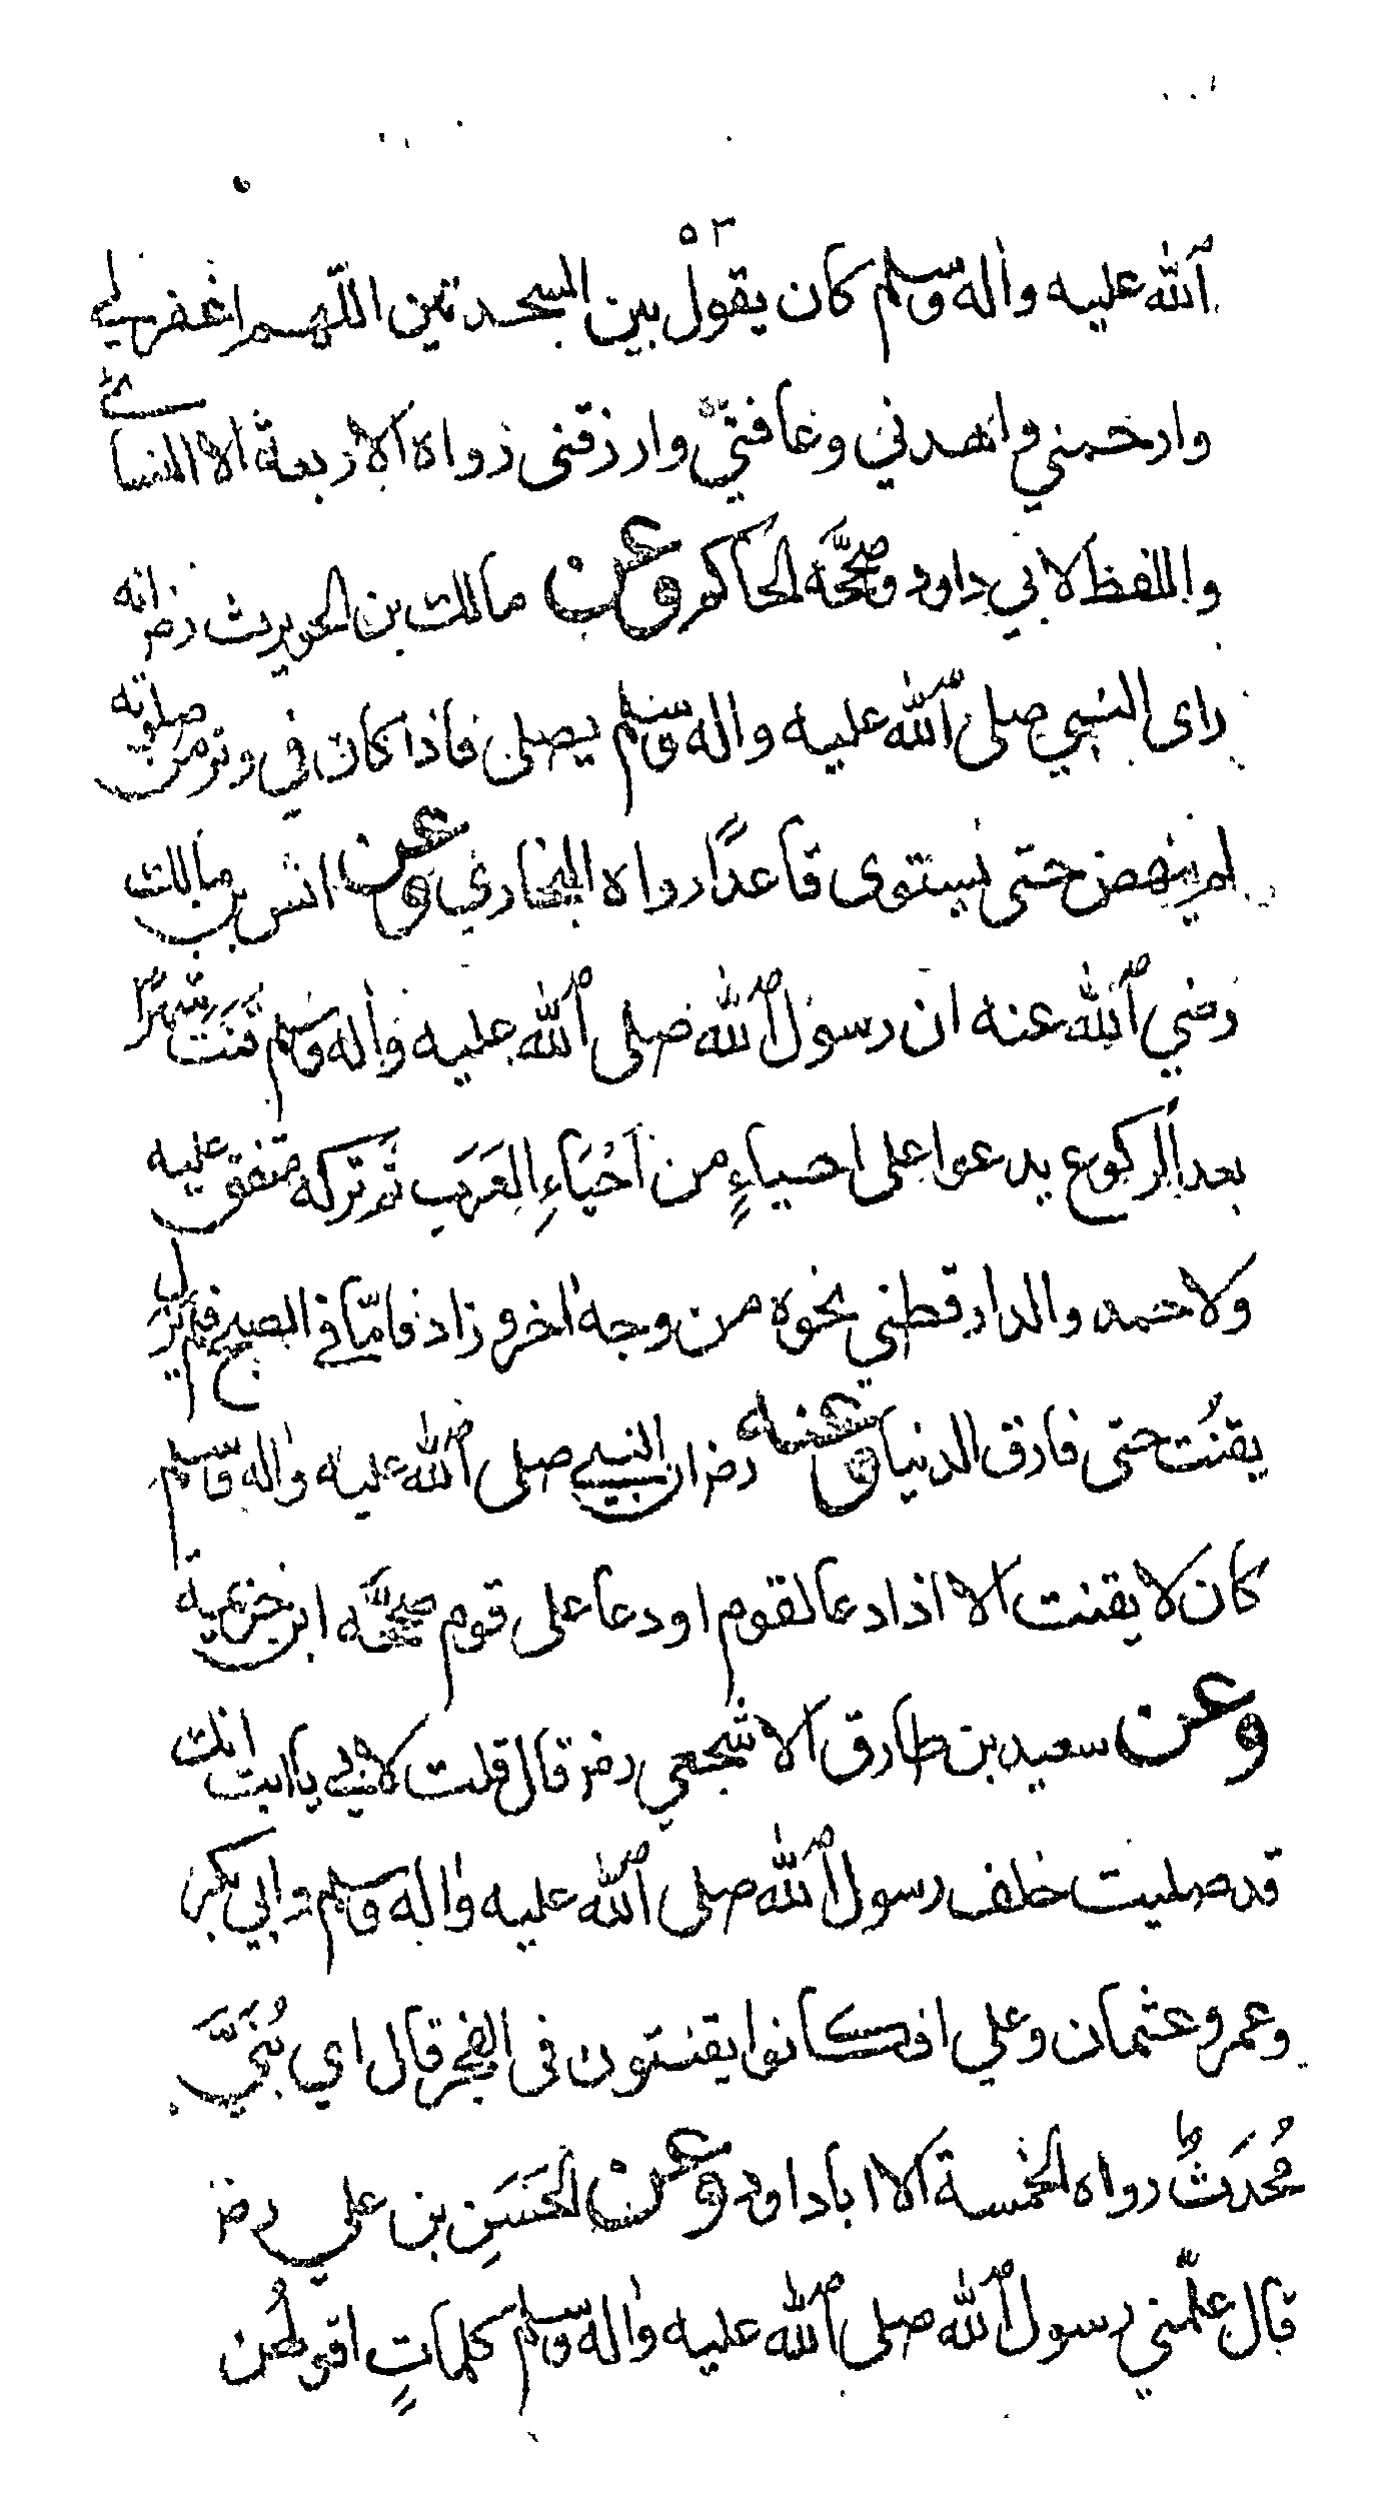 ٥٢
الله عليه واله وسلم كان يقول بين السجدتين اللهم اغفر لي
وارحمني واهدني وعافني وارزقنى رواه الاربعة الا النسائي
واللفظ لابي داود وصححه الحاكم وعن مالك بن الحويرث رض انه
راى النبي صلى الله عليه واله وسلم يصلى فاذا كان في وتر من صلوته
لم ينهض حتى يستوى قاعدًا رواه البخاري وعن انس بن مالك
رضي الله عنه ان رسول الله صلى الله عليه واله وسلم قَنَتَ شهرًا
بعد الركوع يدعوا على احياءٍ من اَحْيَاءِ العَرَبِ ثم تركه متفق عليه
ولاحمد والدارقطني نحوه من وجه اخر وزاد فامّا في الصبح فلم يزل
يقنُت حتى فارق الدنيا وعنه رض ان النبي صلى الله عليه واله وسلم
كان لا يقنت الا اذا دعا لقوم او دعا على قوم صححه ابن خزيمة
وعن سعيد بن طارق الاشجعي رض قال قلت لابي يا ابت انك
قد صليت خلف رسول الله صلى الله عليه واله وسلم وابي بكر
وعمر وعثمان وعلي افكانوا يقنتون فى الفجر قال اي بُنَيَّ
مُحْدَثٌ رواه الخمسة الا ابا داود وعن الحَسَنِ بن علي رض
قال علّمني رسول الله صلى الله عليه واله وسلم كلماتٍ اقولُهن